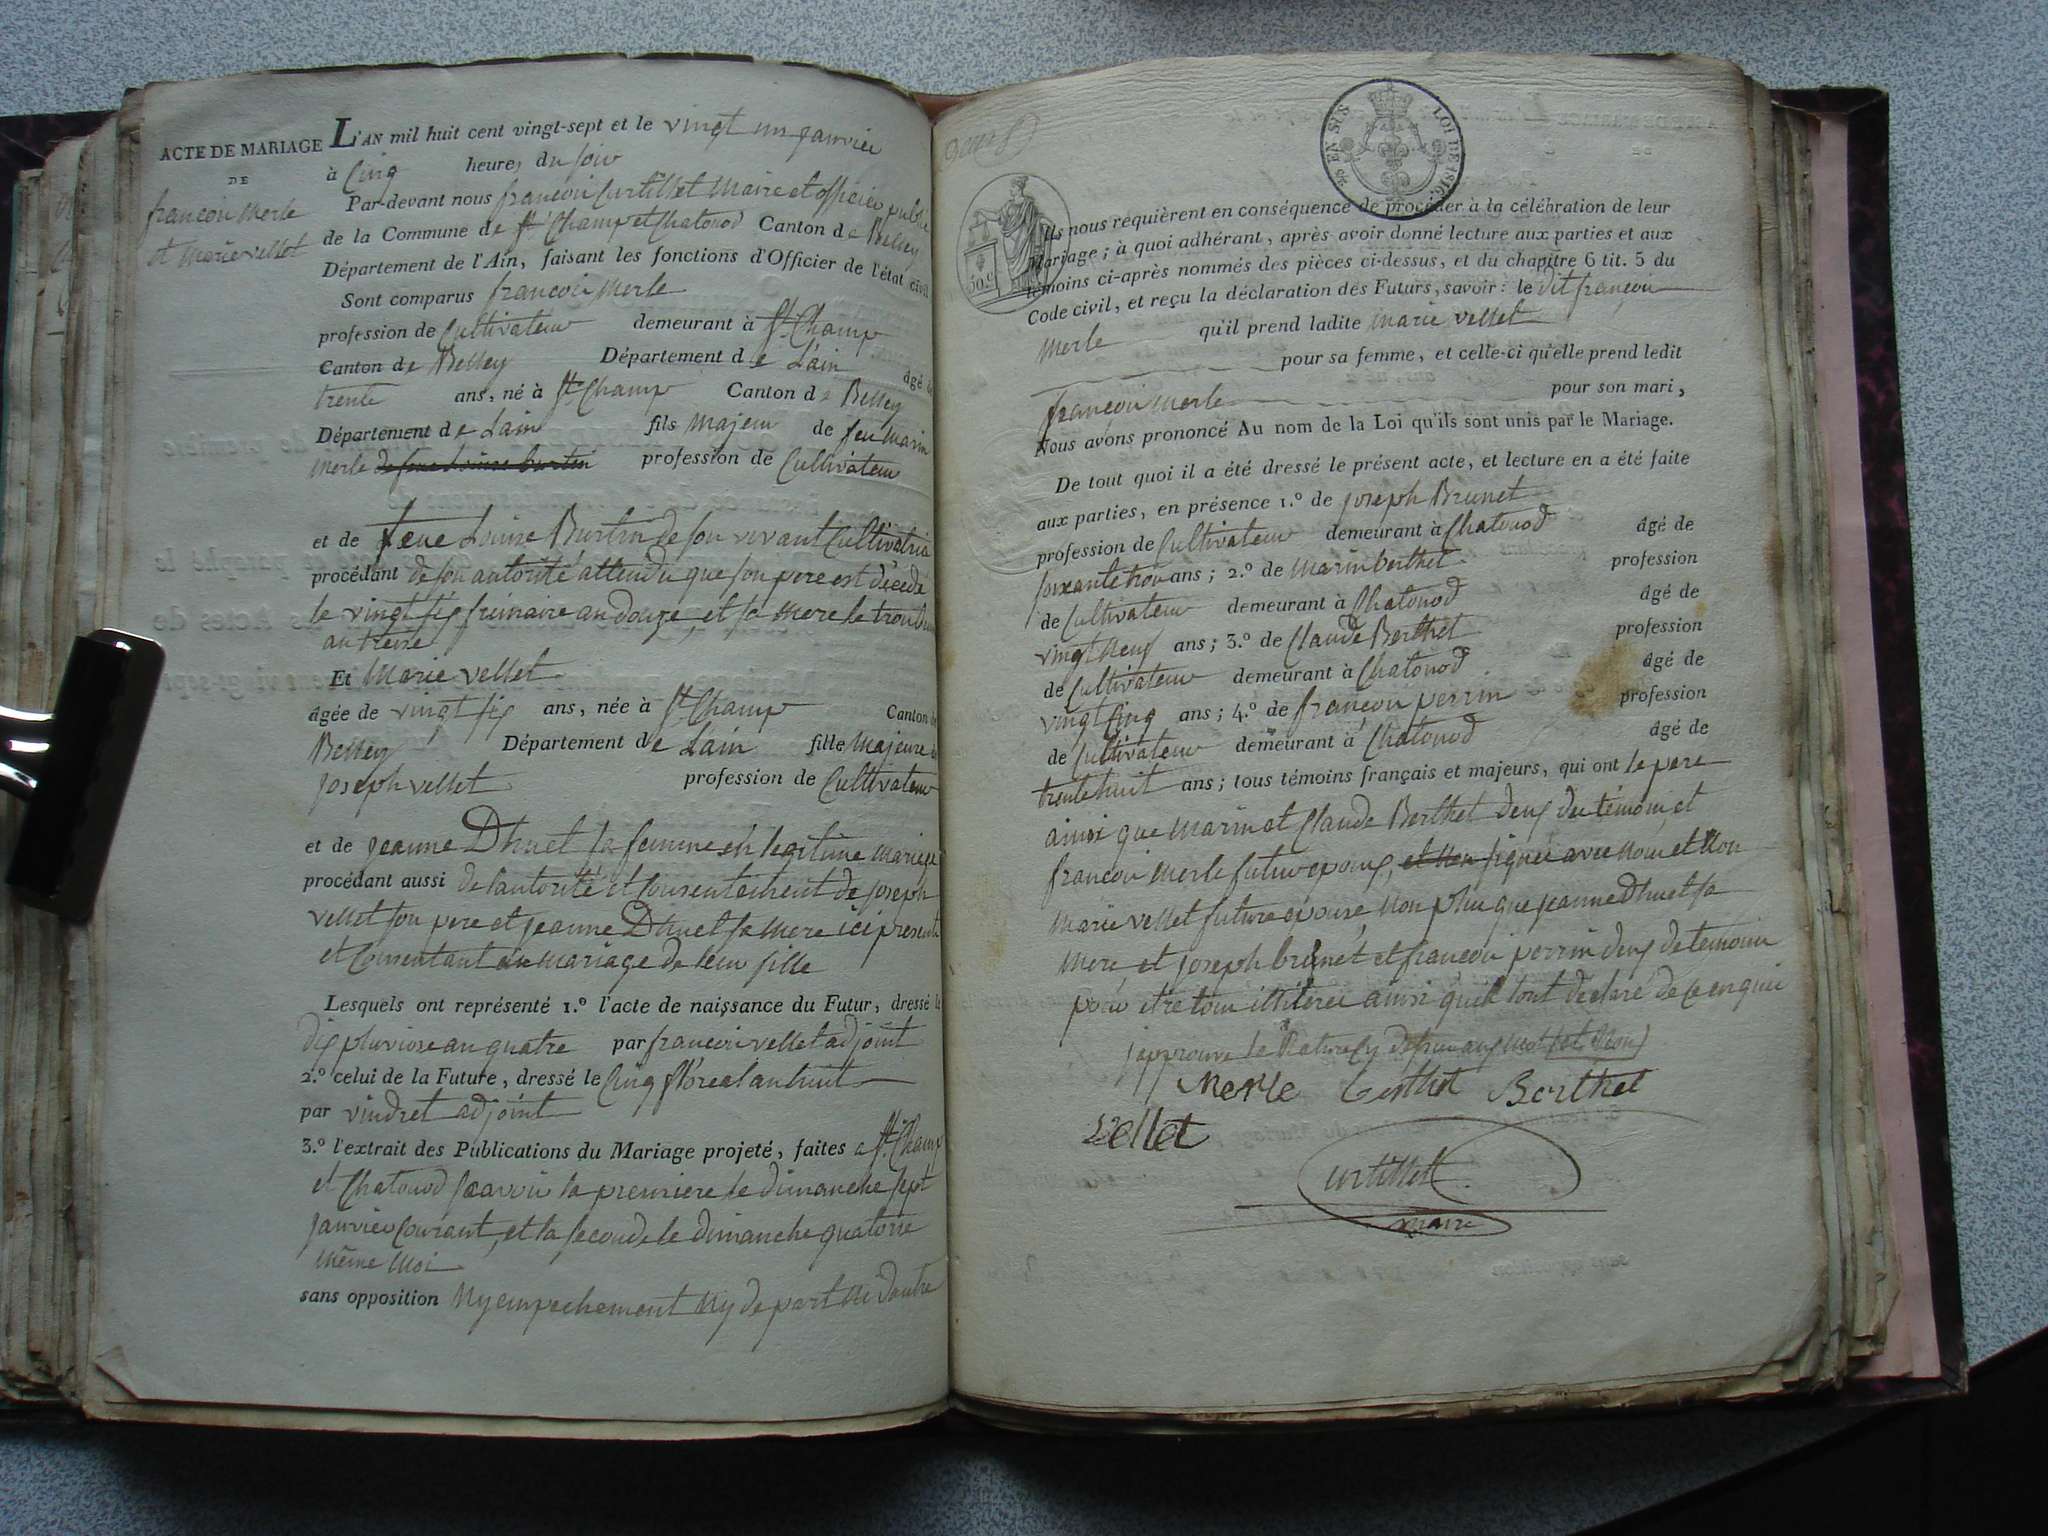 ACTE DE MARIAGE
DE
francois Merle
et Marie vellet
L'AN mil huit cent vingt-sept et le vingt un janvier
à Cinq heures du soir
Par-devant nous francois Curtillet Maire et officier public
de la Commune de St. Champ et Chatonod Canton de Belley
Département de l'Ain, faisant les fonctions d'Officier de l'état civil
Sont comparus francois Merle
profession de Cultivateur demeurant à St. Champ
Canton de Belley Département de Lain âgé de
trente ans, né à St. Champ Canton de Belley
Département de Lain fils Majeur de feu Marin
Merle de feue Louise Burtin profession de Cultivateur
et de feue Louise Burtin de son vivant Cultivatrice
procédant de son autorité attendu que son pere est décédé
le vingt six frimaire an douze, et sa mere le trois
an treise
Et Marie vellet
âgée de vingt six ans, née à St. Champ Canton de
Belley Département de Lain fille Majeure de
Joseph vellet profession de Cultivateur
et de jeanne Dhuet sa femme en legitime mariage
procédant aussi de l'autorité et Consentement de joseph
vellet son pere et jeanne Dhuet sa mere ici present
et Consentant au mariage de leur fille
Lesquels ont représenté 1.º l'acte de naissance du Futur, dressé le
dix pluviose an quatre par francois vellet adjoint
2.º celui de la Future, dressé le Cinq floreal an huit
par vindret adjoint
3.º l'extrait des Publications du Mariage projeté, faites a St. Champ
et Chatonod Scavoir la premiere le dimanche sept
janvier Courant, et la seconde le dimanche quatorse
même Moi
sans opposition Ny empechement Ny de part Ni dautre
EN SUS
LOI DE 1816.
Ils nous requièrent en conséquence de procéder à la célébration de leur
Mariage; à quoi adhérant, après avoir donné lecture aux parties et aux
témoins ci-après nommés des pièces ci-dessus, et du chapitre 6 tit. 5 du
Code civil, et reçu la déclaration des Futurs, savoir: le dit françois
Merle qu'il prend ladite Marie vellet
pour sa femme, et celle-ci qu'elle prend ledit
françois Merle pour son mari,
Nous avons prononcé Au nom de la Loi qu'ils sont unis par le Mariage.
De tout quoi il a été dressé le présent acte, et lecture en a été faite
aux parties, en présence 1.º de joseph Brunet
profession de Cultivateur demeurant à Chatonod âgé de
soixante trois ans; 2.º de Marin berthet profession
de Cultivateur demeurant à Chatonod âgé de
vingt Neuf ans; 3.º de Claude Berthet profession
de Cultivateur demeurant à Chatonod âgé de
vingt Cinq ans; 4.º de françois perrin profession
de Cultivateur demeurant à Chatonod âgé de
trente huit ans; tous témoins français et majeurs, qui ont le pere
ainsi que Marin et Claude Berthet deux des témoins, et
françois Merle futur epoux, et Non signée avec Nous et Non
Marie vellet future epouse, Non plus que jeanne Dhuet sa
Mere et joseph brunet et francois perrin deux de temoins
pour etre tous illiterés ainsi quils lont declaré de Ce enquis
japprouve la Rature cy dessus aux mots (et Non)
Merle Berthet Berthet
Vellet
Curtillet
Maire